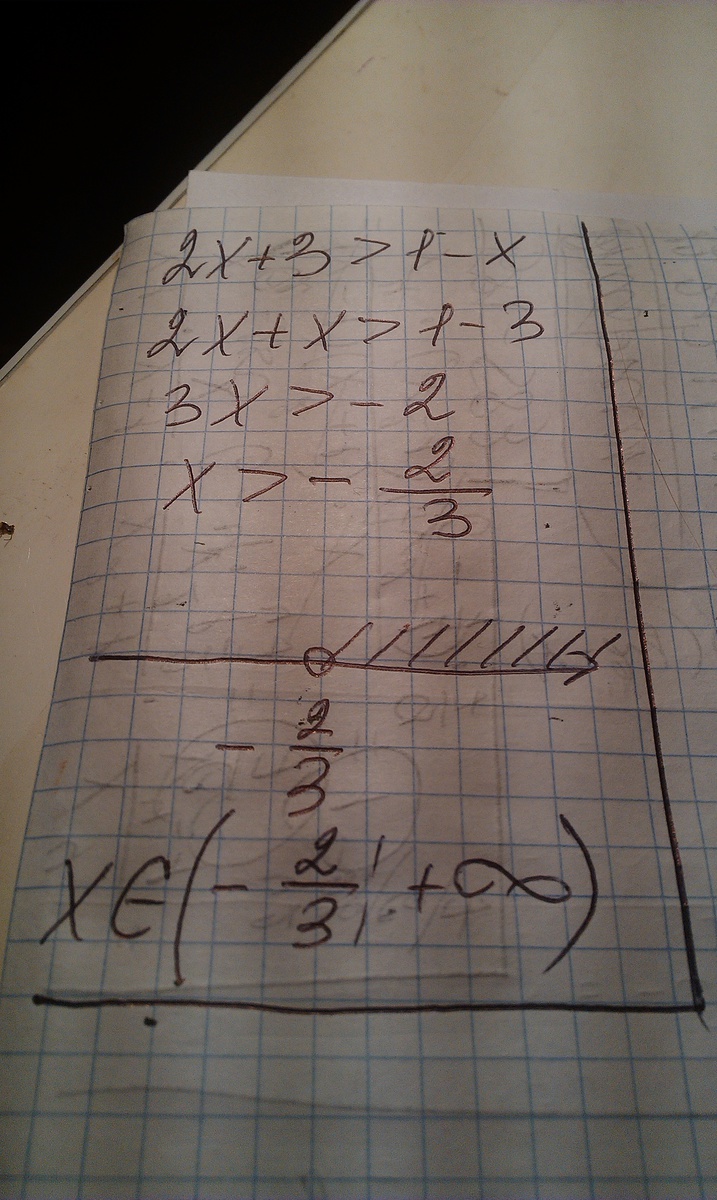 2x+3>1-x
2x+x>1-3
3x>-2
x>-2/3
-2/3
x∈(-2/3; +∞)